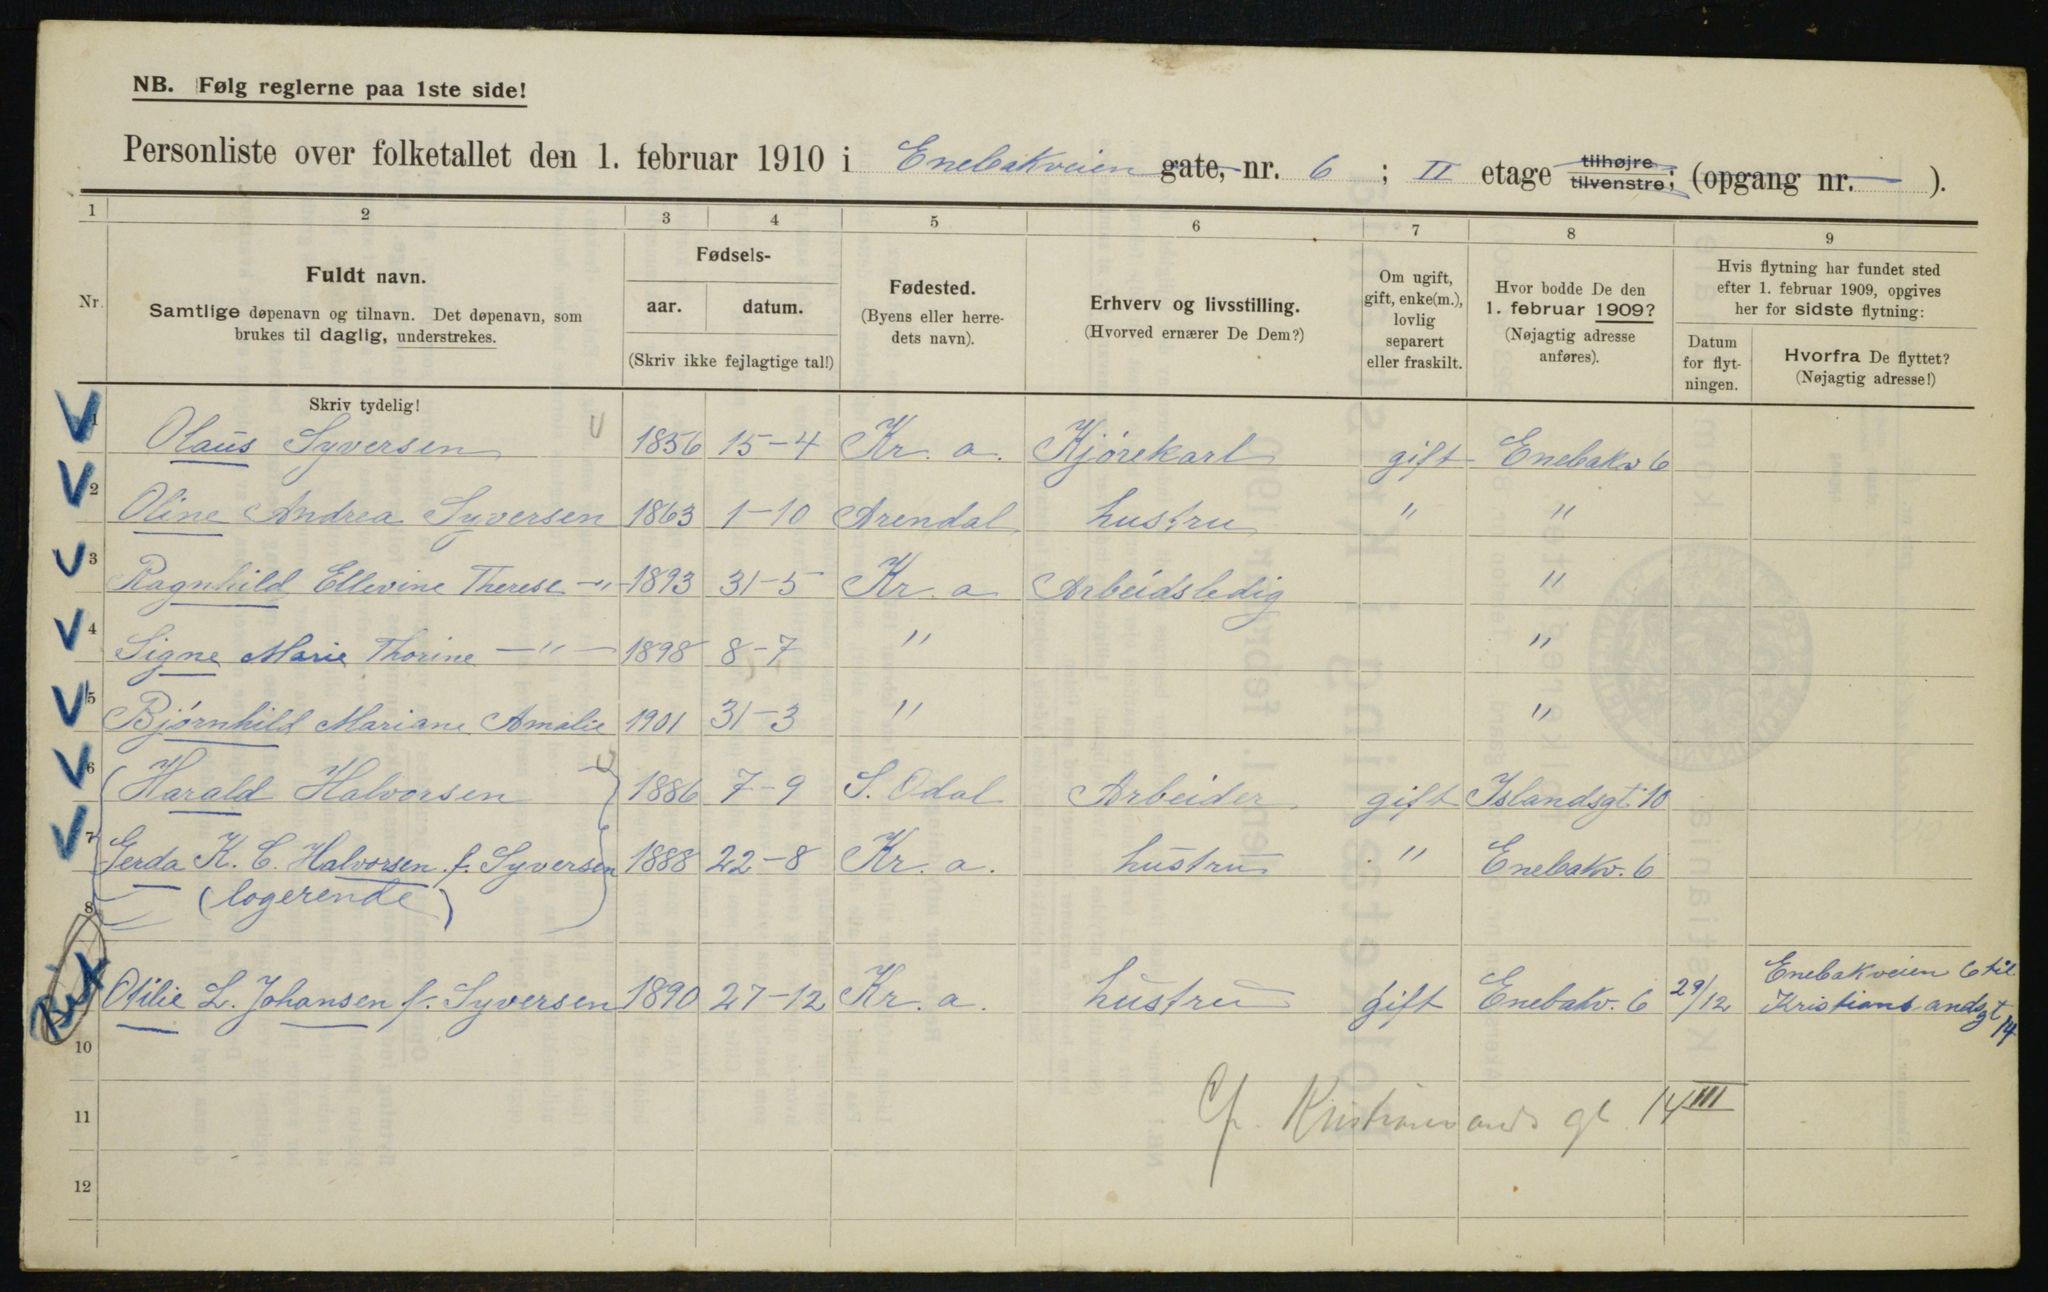 NB. Følg reglerne paa 1ste side!
Personliste over folketallet den 1. februar 1910 i Enebakveien gate, nr. 6 ; II etage tilhøjre tilvenstre; (opgang nr. — ).
1 2 3 4 5 6 7 8 9
Nr.
Fuldt navn.
Samtlige døpenavn og tilnavn. Det døpenavn, som
brukes til daglig, understrekes.
Skriv tydelig!
Fødsels-
aar. datum.
(Skriv ikke fejlagtige tal!)
Fødested.
(Byens eller herre-
dets navn).
Erhverv og livsstilling.
(Hvorved ernærer De Dem?)
Om ugift,
gift, enke(m.),
lovlig
separert
eller fraskilt.
Hvor bodde De den
1. februar 1909?
(Nøjagtig adresse
anføres).
Hvis flytning har fundet sted
efter 1. februar 1909, opgives
her for sidste flytning:
Datum
for flyt-
ningen.
Hvorfra De flyttet?
(Nøjagtig adresse!)
1 Olaus Syversen 1856 15-4 Kr. a. Kjørekarl gift Enebakv 6
2 Oline Andrea Syversen 1863 1-10 Arendal hustru " "
3 Ragnhild Ellevine Therese -"- 1893 31-5 Kr. a Arbeidsledig "
4 Signe Marie Thorine -"- 1898 8-7 " "
5 Bjørnhild Mariane Amalie 1901 31-3 " "
6 Harald Halvorsen 1886 7-9 S. Odal Arbeider gift Islandsgt. 10
7 Gerda K. C. Halvorsen f. Syversen 1888 22-8 Kr. a. hustru " Enebakv. 6
8 (logerende)
Otilie L. Johansen f. Syversen 1890 27-12 Kr. a. hustru gift Enebakv. 6 29/12 Enebakveien 6 til
Kristiansandsgt 14
10
11 Cfr. Kristiansands gt. 14 III
12